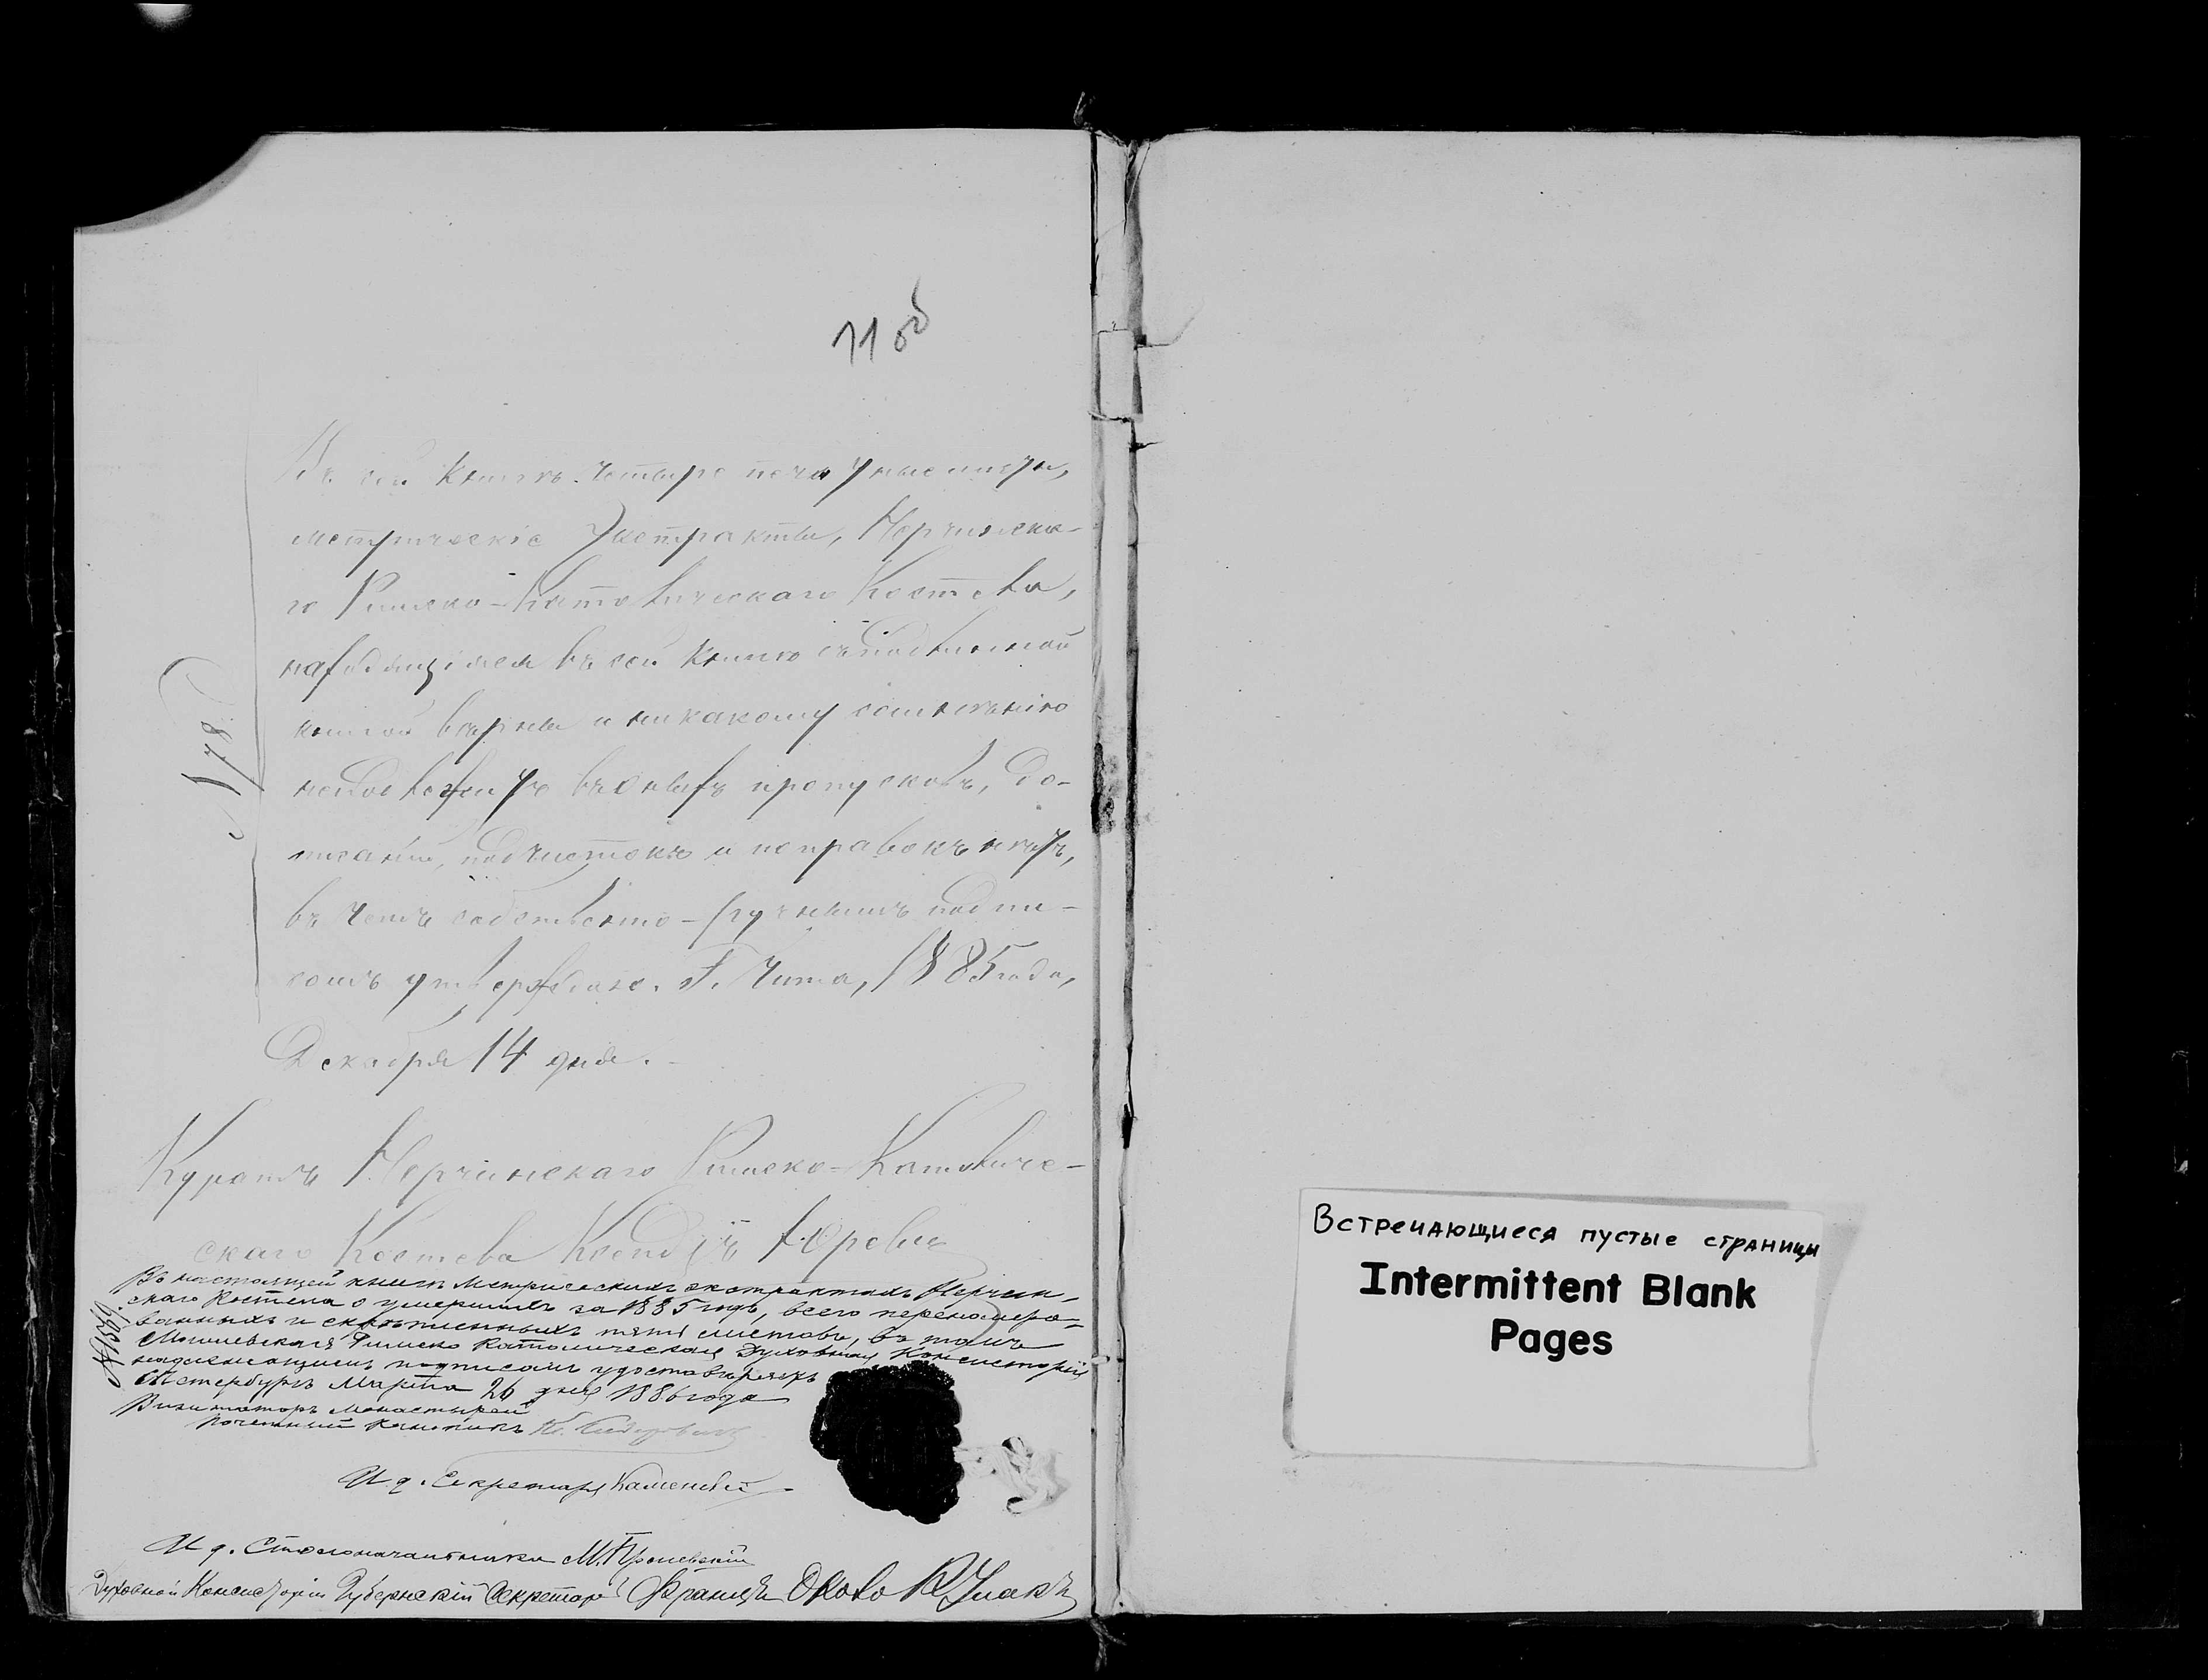 11 об
Въ сей книгѣ четыре печатные листы,
метрическіе Экстракты, Нерчинска-
го Римско-Католическаго Костела,
находящіяся въ сей книгѣ съ подлинной
книгой вѣрны и никакому сомнѣнію
неподлежитъ въ оныхъ пропусковъ, до-
писаній, подчистокъ и поправокъ нѣтъ,
въ чемъ собственно-ручнымъ подпи-
сомъ утверждаю. Г. Чита, 1885 года,
Декабря 14 дня.
№ 178
Куратъ Нерчинскаго Римско-Католиче-
скаго Костела Ксендзъ
Въ настоящей книгѣ метрическихъ экстрактахъ Нерчин-
скаго Костела о умершихъ за 1885 годъ, всего перенумеро-
ванныхъ и скрѣпленныхъ пять листовъ, въ томъ
Могилевская Римско Католическая Духовная Консисторія
надлежащимъ подписомъ удостовѣряетъ
Петербургъ Марта 26 дня 1886 года
Визитаторъ Монастырей
почетный каноникъ
И д. Секретаря
И д. Столоначальника М.
Духовной Консисторіи Губернскій Секретарь Францъ Около Кулакъ
Встречающиеся пустые страницы
Intermittent Blank
Pages